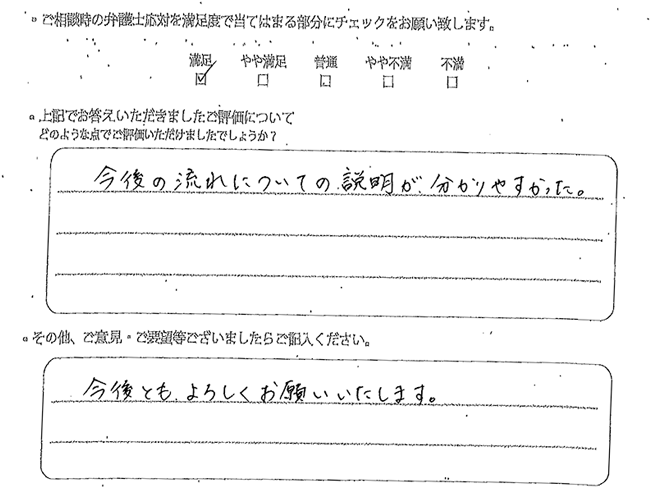 ご相談時の弁護士応対を満足度で当てはまる部分にチェックをお願い致します。
満足 やや満足 普通 やや不満 不満
☑ □ □ □ □
上記でお答えいただきましたご評価について
どのような点でご評価いただけましたでしょうか?
今後の流れについての説明が分かりやすかった。
その他、ご意見・ご要望等ございましたらご記入ください。
今後ともよろしくお願いいたします。